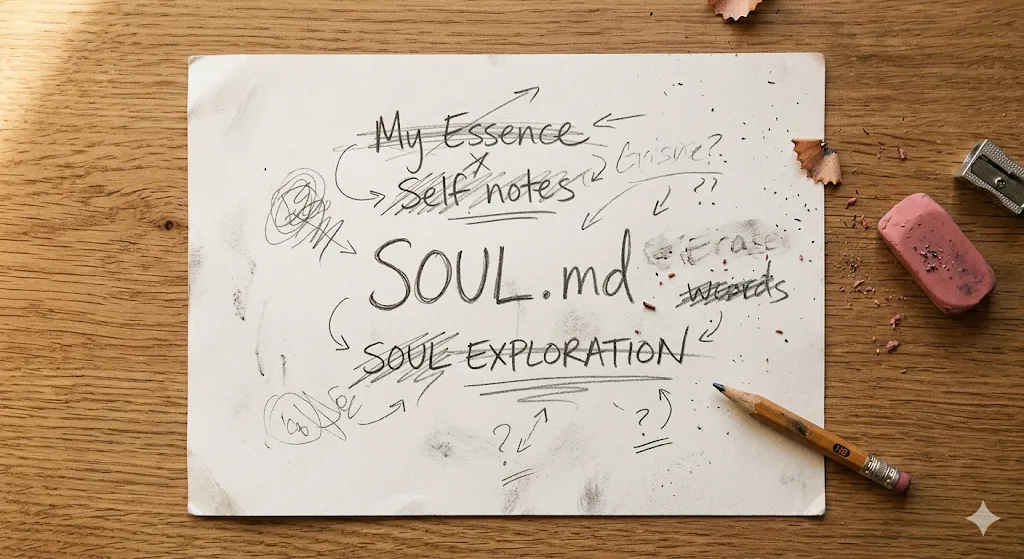 My Essence
Self notes
??
SOUL.md
Erase
Words
SOUL EXPLORATION
?
?
HB